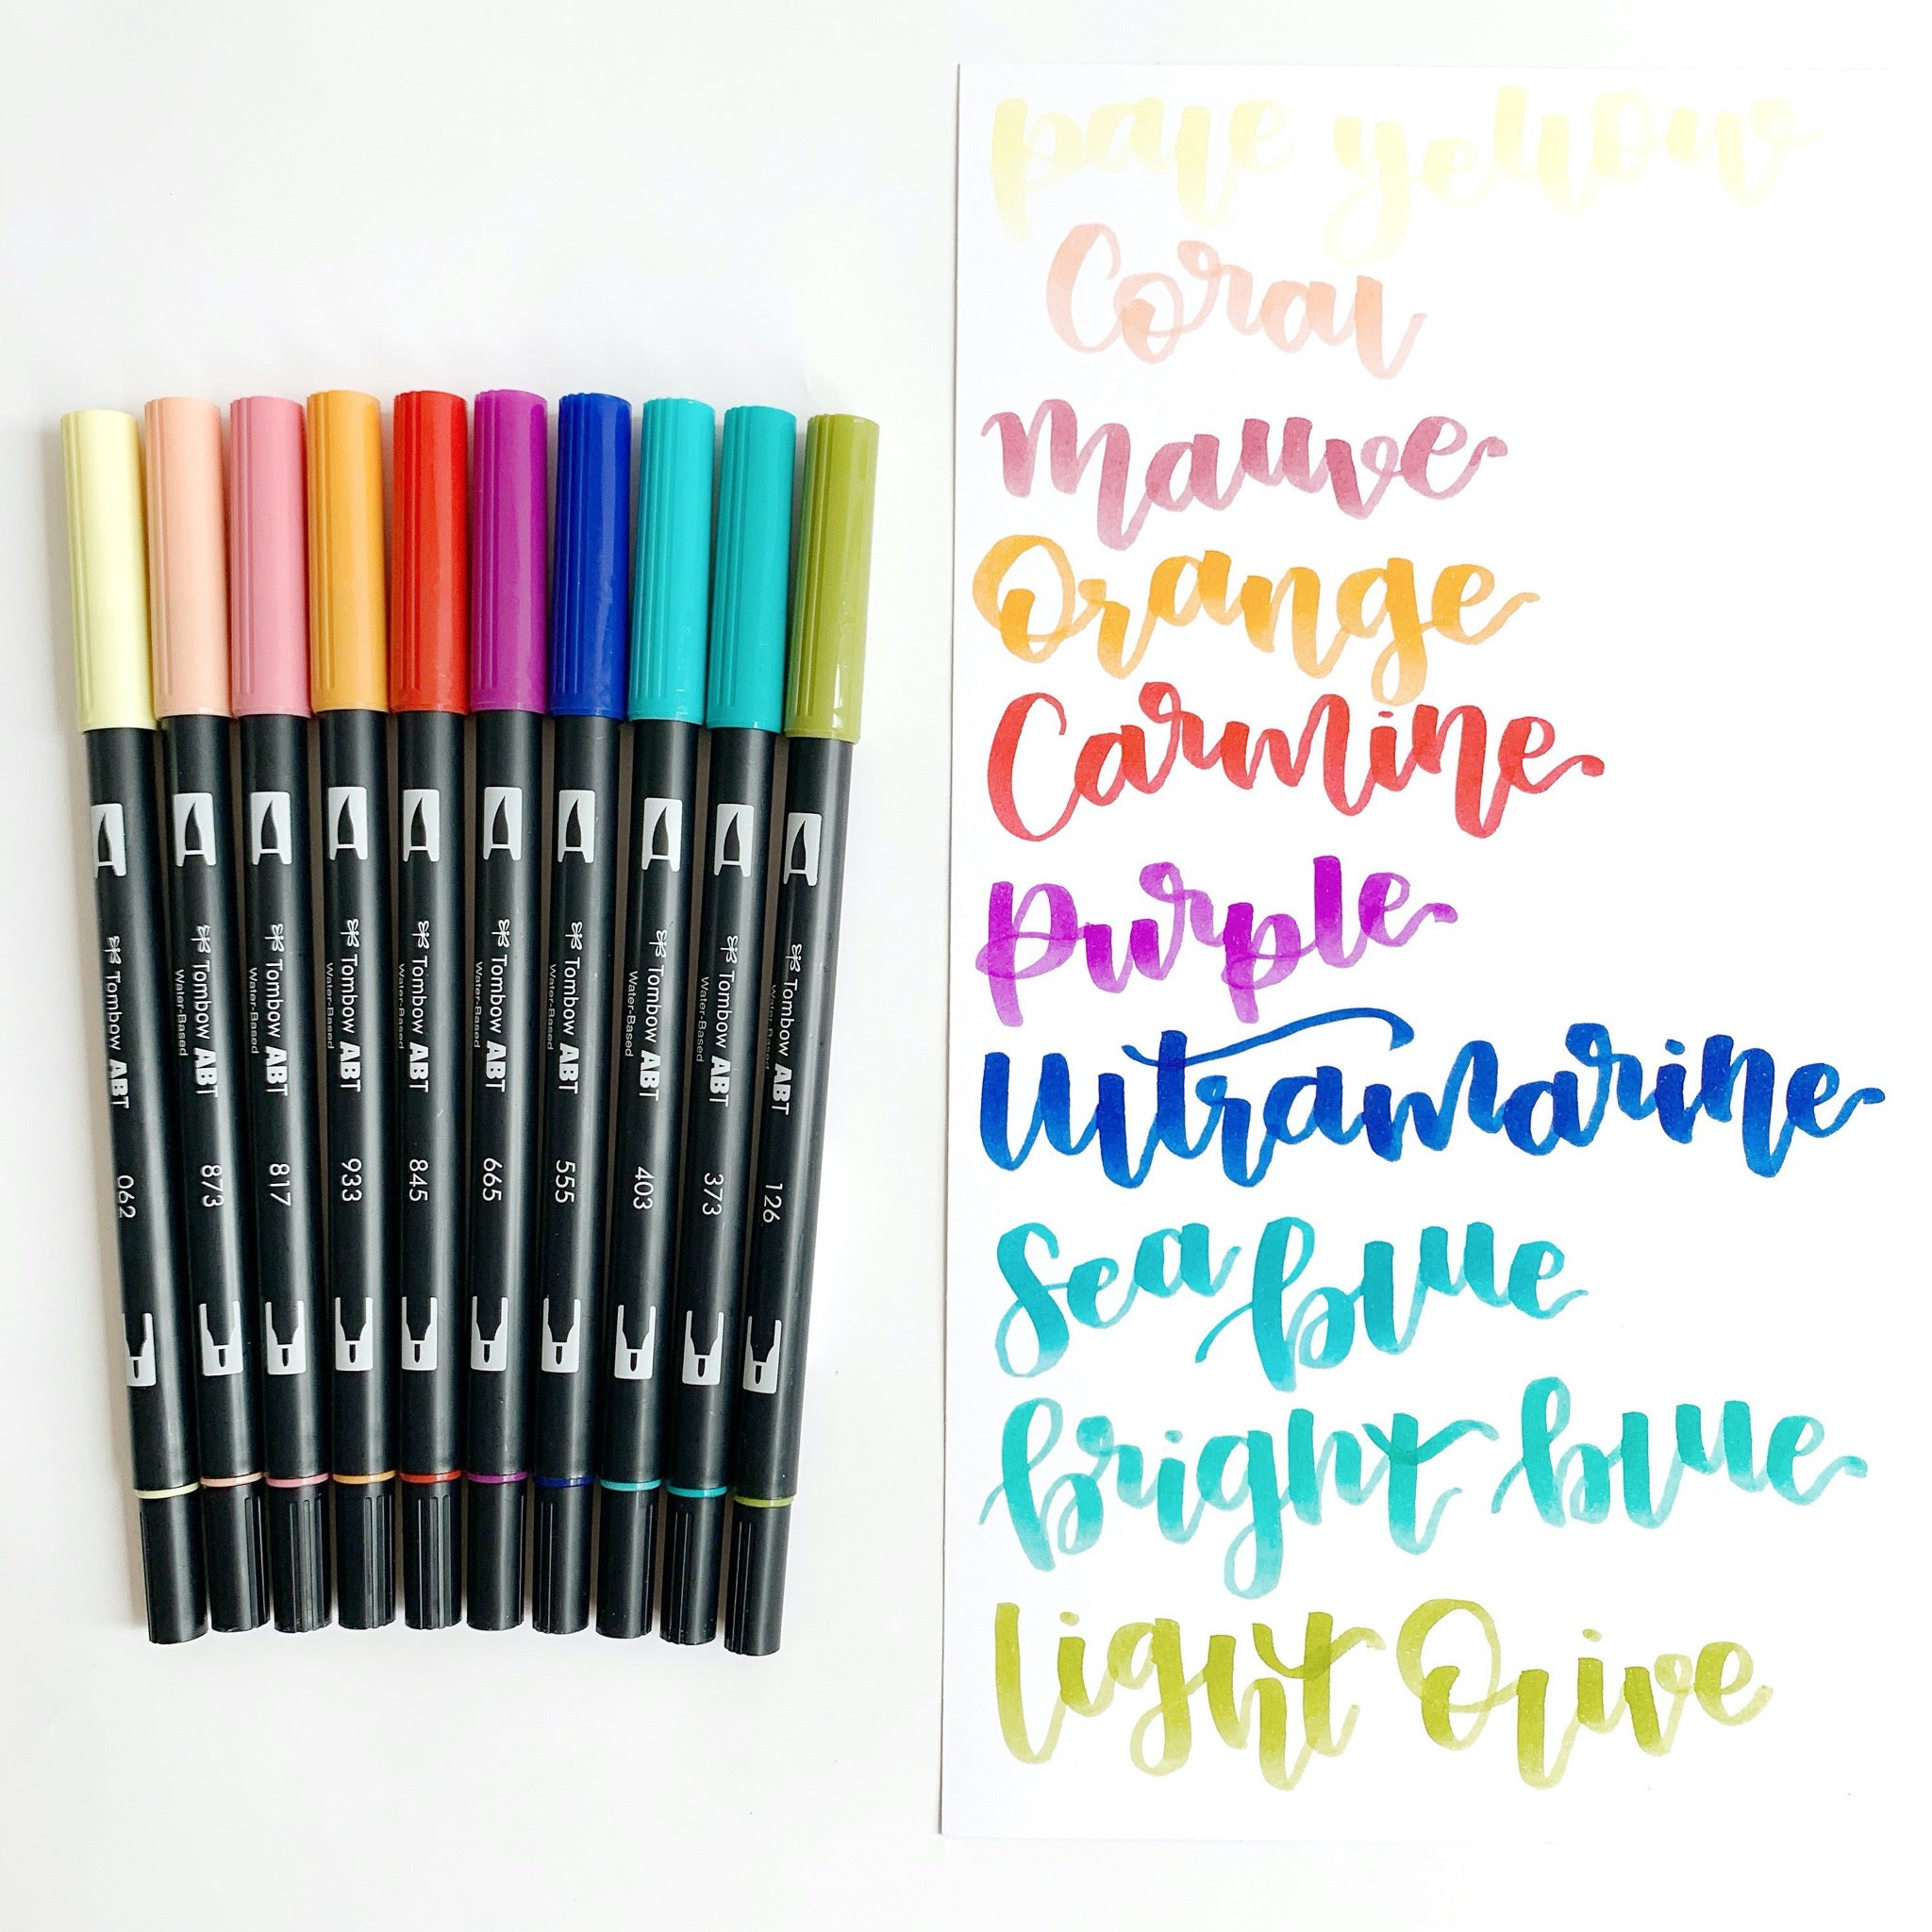 Tombow ABT 062
Tombow ABT Water-Based 873
Tombow ABT Water-Based 817
Tombow ABT Water-Based 933
Tombow ABT Water-Based 845
Tombow ABT Water-Based 665
Tombow ABT Water-Based 555
Tombow ABT Water-Based 403
Tombow ABT Water-Based 373
Tombow ABT Water-Based 126
pale yellow
Coral
Mauve
Orange
Carmine
Purple
Ultramarine
Sea blue
bright blue
Light Olive